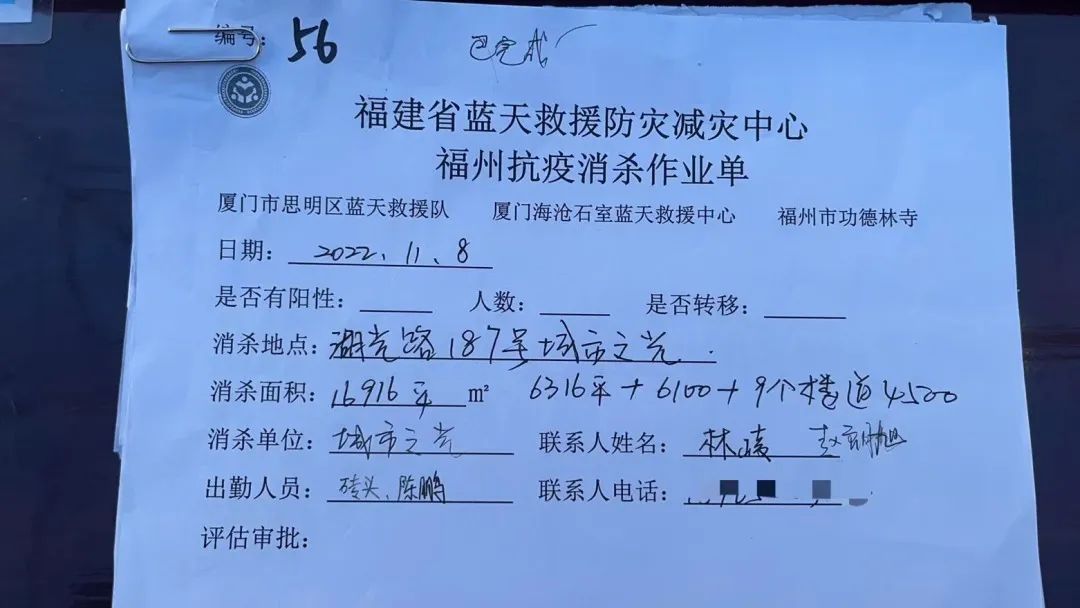 编号：56 已完成
福建省蓝天救援防灾减灾中心
福州抗疫消杀作业单
厦门市思明区蓝天救援队 厦门海沧石室蓝天救援中心 福州市功德林寺
日期：2022、11、8
是否有阳性： 人数： 是否转移：
消杀地点：湖光路187号城市之光.
消杀面积：16916平 m² 6316平+6100+9个楼道4500
消杀单位：城市之光 联系人姓名：林
出勤人员：砖头、陈鹏 联系人电话：
评估审批：